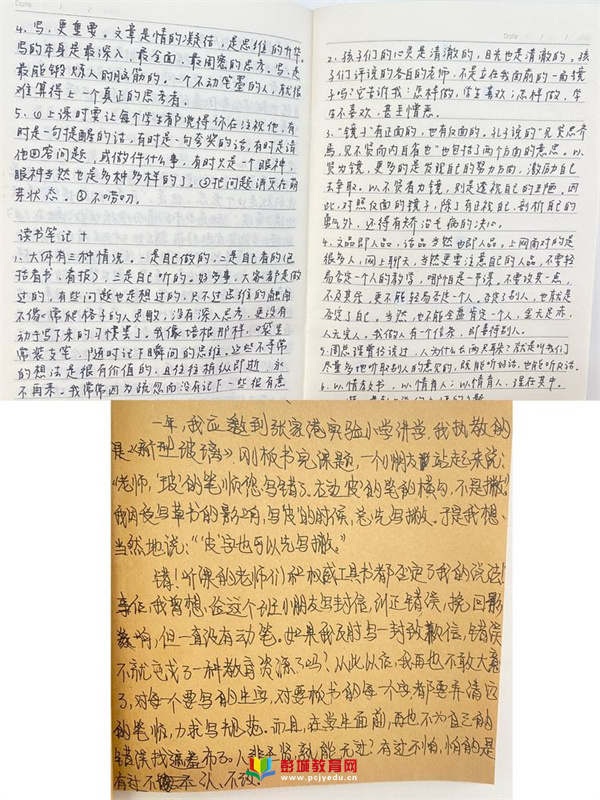 Date / /
4. 写,更重要。文章是情的凝结,是思维的升华。
写的本身是最深入、最全面、最周密的思考。写,是
最能锻炼人的脑筋的。一个不动笔墨的人,就很
难算得上一个真正的思考者。
5. ①上课时要让每个学生都觉得你在注视他,有
时是一句提醒的话,有时是一句夸奖的话,有时是请
他回答问题,或做件什么事,有时只是一个眼神,
眼神当然也是多种多样的了。②把问题消灭在萌
芽状态。③不唠叨。
读书笔记十
1、大体有三种情况,一是自己做的,二是自己看的(包
括看书、看报),三是自己听的。好多事,大家都是做
过的,有些问题也是想过的,只不过思维的触角
不像常爬格子的人灵敏,没有深入思考,更没有
动手写下来的习惯罢了。我像培根那样,口袋里
常装支笔,随时记下瞬间的思维,这些不寻常
的想法是很有价值的,且往往稍纵即逝,永
不再来。我常常因为疏忽而没有记下一些很有意
Date / /
2、孩子们的心灵是清澈的,目光也是清澈的,孩
子们评说的各自的老师,不是立在我面前的一面镜
子吗?它告诉我:怎样做,学生喜欢;怎样做,学
生不喜欢,甚至憎恶。
3、“镜子”有正面的,也有反面的。孔子说的“见贤思齐
焉,见不贤而内自省也”也包括了两个方面的意思。以
贤为镜,更多的是发现自己的努力方向,激励自己
去争取。以不贤者为镜,则是透视自己的丑陋。因
此,对照反面的镜子,除了有正视自己、剖析自己的
勇气外,还得有矫治毛病的决心。
4、文品即人品,话品当然也即人品,上网面对的是
很多人,网上聊天,当然更要注意自己的人品。不要轻
易否定一个人的教学,哪怕是一节课。不要攻其一点,
不及其余,更不能轻易否定一个人。否定了别人,也就是
否定了自己。当然,也不能全盘肯定一个人,金无足赤,
人无完人。我做人有一个信条,即善待别人。
5、周恩来曾经说过,人为什么长两只耳朵?就是叫我们
尽量多地听取别人的意见的,既能听好话,也能听反话。
6、以情教书,以情育人;以情育人,理在其中。
一年,我应邀到张家港实验小学讲学,我执教的
是《新型玻璃》。刚板书完课题,一个小朋友站起来说:
“老师,‘玻’的笔顺您写错了。右边‘皮’的笔的横勾,不是撇。”
我因受写草书的影响,写‘皮’的时候,总先写撇。于是我想
当然地说:“‘皮’字也可以先写撇。”
错!听课的老师们和权威工具书都否定了我的说法!
事后,我曾想,给这个班小朋友写封信,纠正错误,挽回影
响,但一直没有动笔。如果我及时写一封致歉信,错误
不就变成了一种教育资源了吗?从此以后,我再也不敢大意
了,对每个要写的生字,对要板书的每个字都要弄清它
的笔顺,力求写规范。而且,在学生面前,再也不为自己的
错误找遮羞布了。人非圣贤,孰能无过?有过不怕,怕的是
有过不承认、不改。
彭城教育网
www.pcjyedu.com